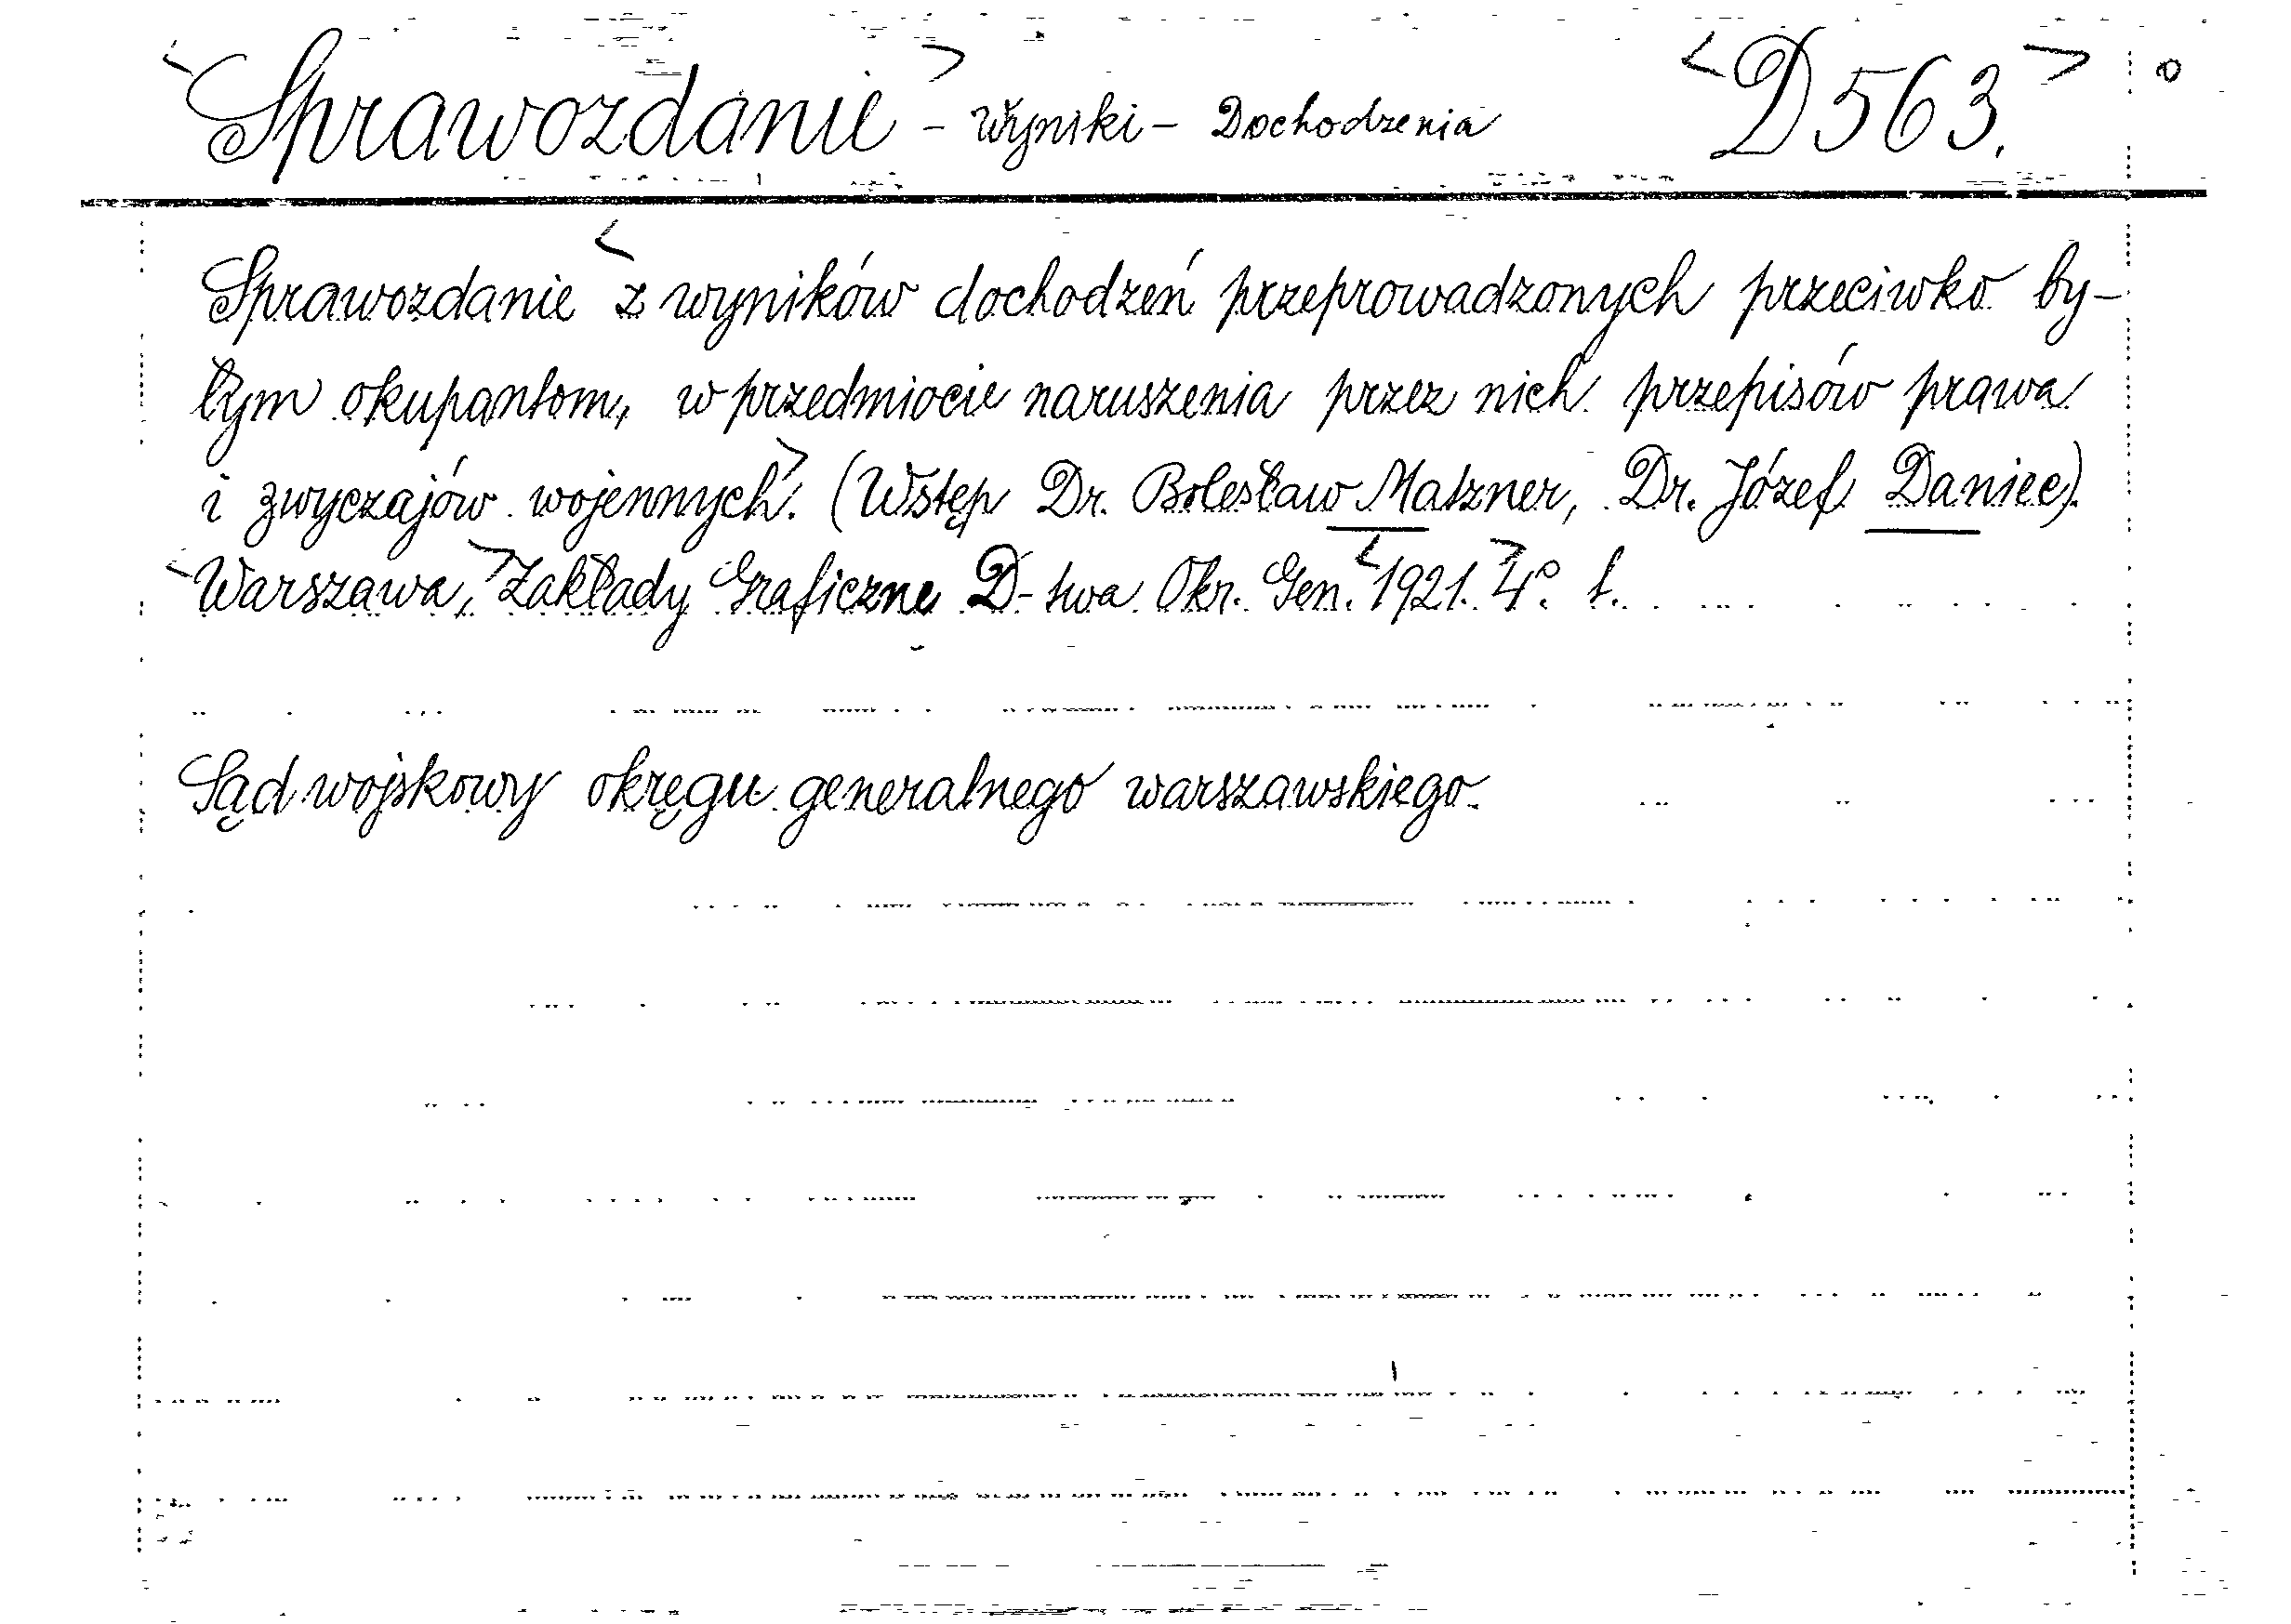 Sprawozdanie - Wyniki - Dochodzenia D 563.
Sprawozdanie z wyników dochodzeń przeprowadzonych przeciwko by-
łym okupantom, w przedmiocie naruszenia przez nich przepisów prawa
i zwyczajów wojennych. (Wstęp Dr. Bolesław Matzner, Dr. Józef Daniec).
Warszawa, Zakłady Graficzne D-twa Okr. Gen. 1921. 4°.
Sąd wojskowy okręgu generalnego warszawskiego.